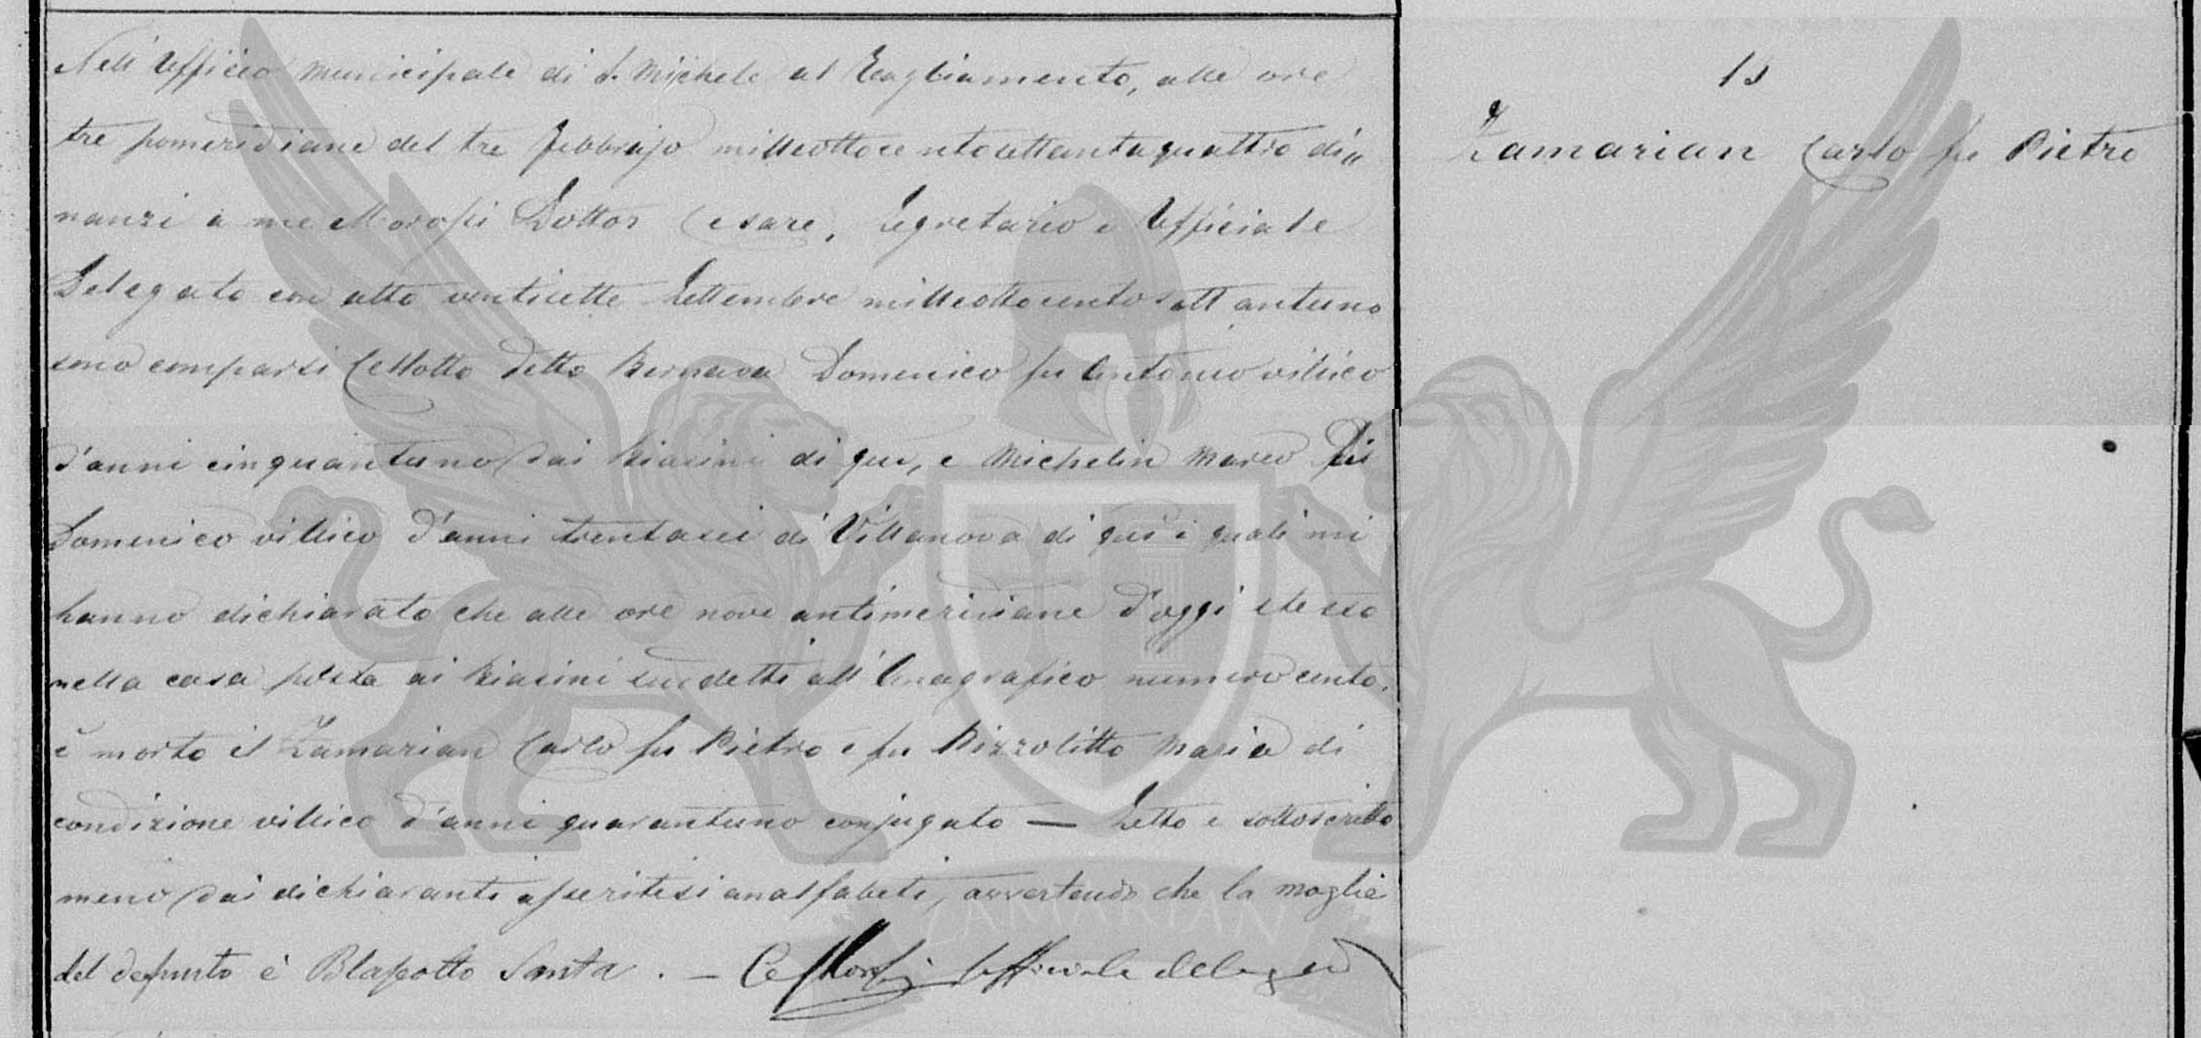 Nell'Ufficio municipale di S. Michele al Tagliamento, alle ore
tre pomeridiane del tre Febbrajo milleottocentottantaquattro di„
nanzi a me Morossi Dottor Cesare, Segretario e Ufficiale
Delegato con atto ventisette Settembre milleottocentosettantuno
sono comparsi Cellotto detto Domenico fu Antonio villico
d'anni cinquantuno dai Biasini di qui, e Michelin Marco
Domenico villico d'anni trentasei di Villanova di qui i quali mi
hanno dichiarato che alle ore nove antimeridiane d'oggi stesso
nella casa posta ai Biasini suddetti all'Anagrafico numero cento,
è morto il Zamarian Carlo fu Pietro e fu Bizzolitto Maria di
condizione villico d'anni quarantuno conjugato — Letto e sottoscritto
meno dai dichiaranti asseritisi analfabeti, avvertendo che la moglie
del defunto è Blasotto Santa. — Ufficiale delegato
15
Zamarian Carlo fu Pietro
ZAMARIAN